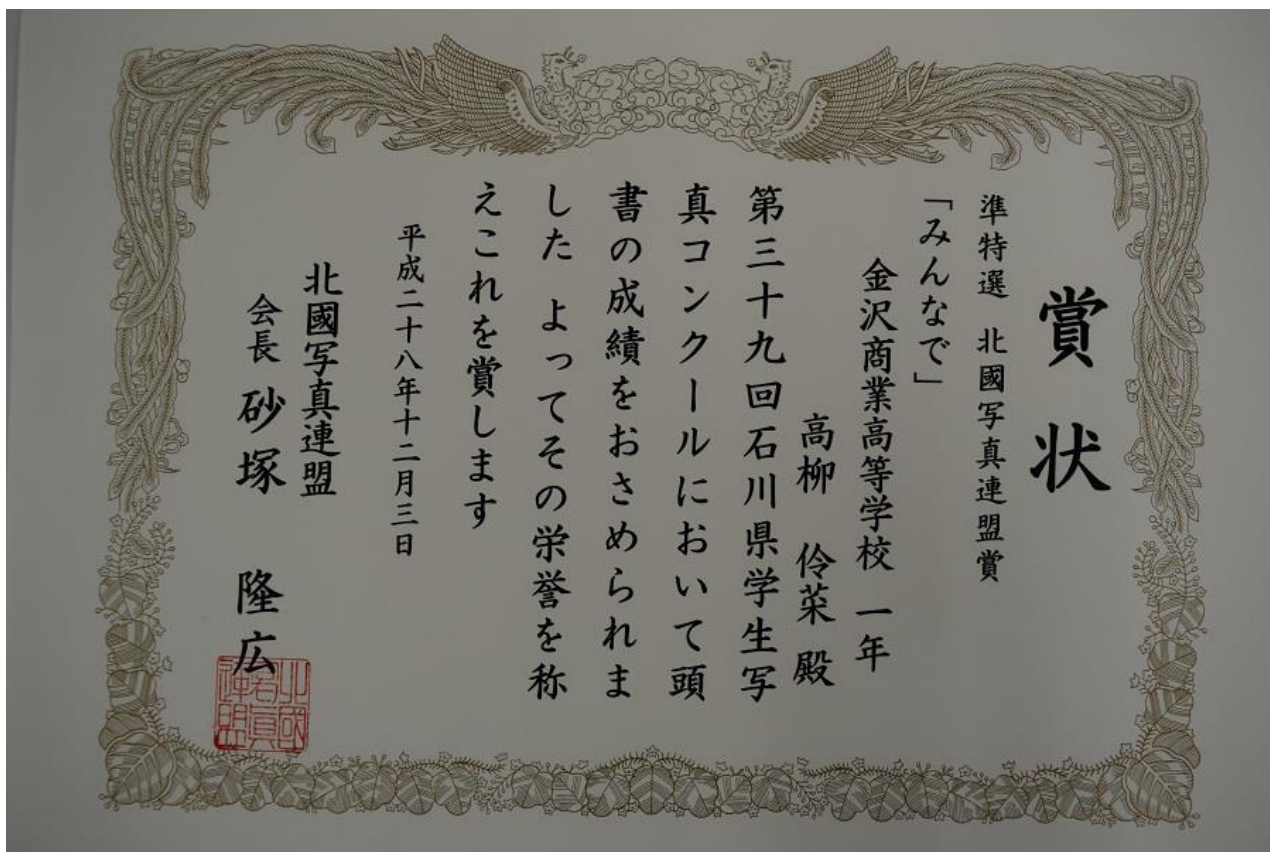 賞状
準特選 北國写真連盟賞
「みんなで」
金沢商業高等学校 一年
高柳 伶菜 殿
第三十九回石川県学生写
真コンクールにおいて頭
書の成績をおさめられま
した よってその栄誉を称
えこれを賞します
平成二十八年十二月三日
北國写真連盟
会長 砂塚 隆広
北國
写真
連盟